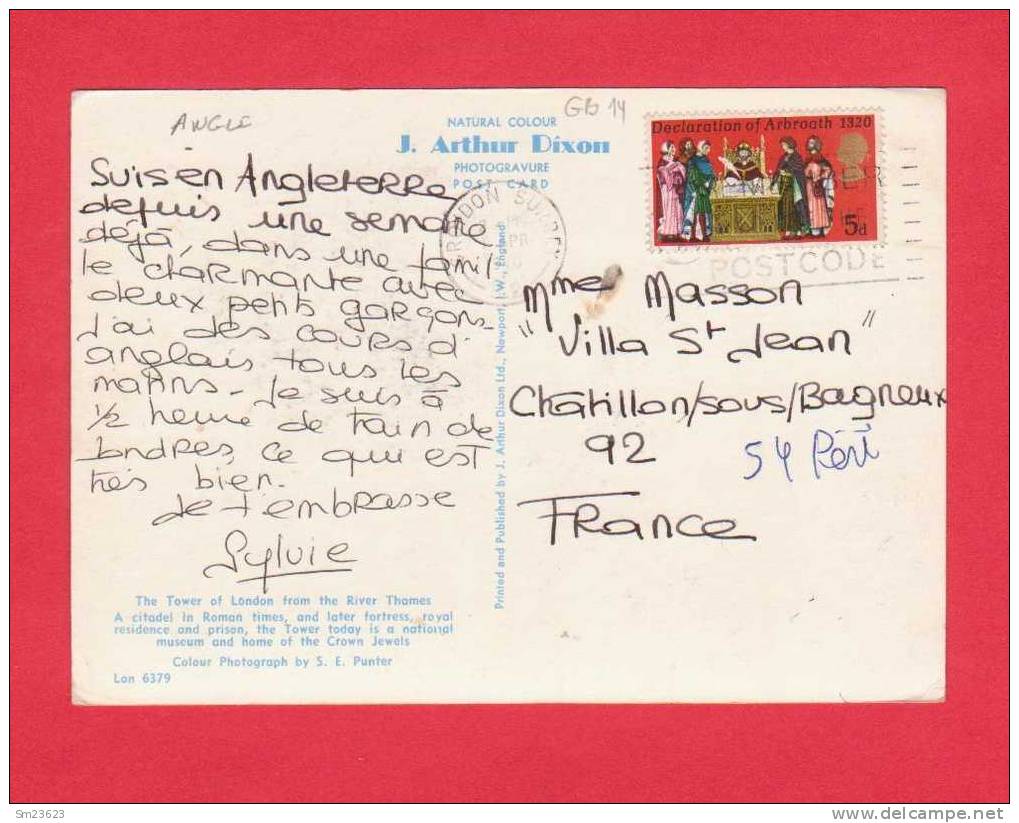 ANGLE
GB 14
NATURAL COLOUR
J. Arthur Dixon
PHOTOGRAVURE
POST CARD
Declaration of Arbroath 1320
5d
POSTCODE
Suis en Angleterre
depuis une semaine
déjà, dans une famil
le charmante avec
deux petits garçons.
J'ai des cours d'
anglais tous les
matins. Je suis à
1/2 heure de train de
Londres, ce qui est
très bien.
Je t'embrasse
Sylvie
The Tower of London from the River Thames
A citadel in Roman times, and later fortress, royal
residence and prison, the Tower today is a national
museum and home of the Crown Jewels
Colour Photograph by S. E. Punter
Lon 6379
Printed and Published by J. Arthur Dixon Ltd., Newport, I.W., England
Mme Masson
"Villa St Jean"
Châtillon/sous/Bagneux
92
54
France
Sm23623
www.delcampe.net